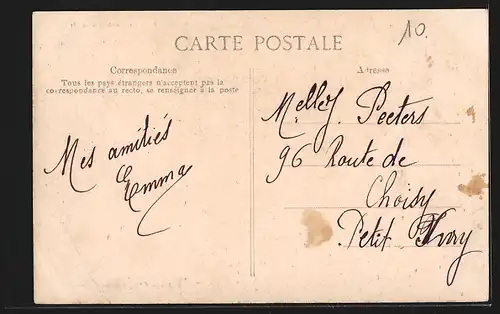 10.
CARTE POSTALE
Correspondance
Tous les pays étrangers n'acceptent pas la
correspondance au recto, se renseigner à la poste
Mes amitiés
Emma
Adresse
Melle J. Peeters
96 Route de
Choisy
Petit Ivry